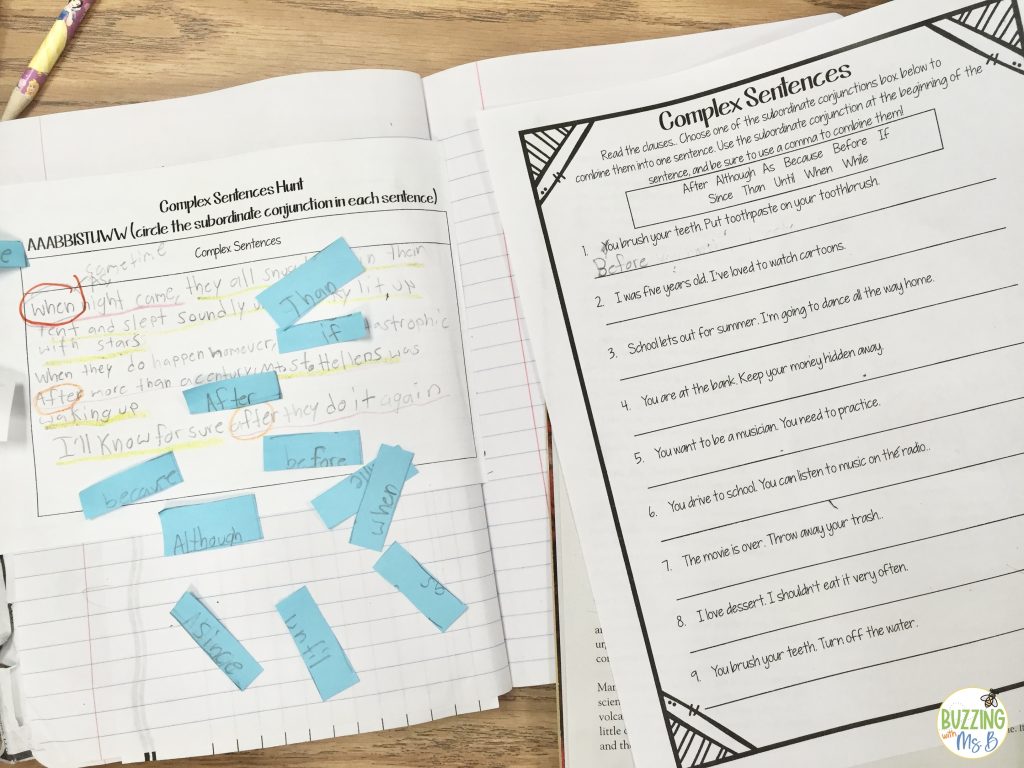 Complex Sentences Hunt
AAABBISTUWW (circle the subordinate conjunction in each sentence)
Complex Sentences
Sometime
When night came, they all in their
tent and slept soundly lit up
with stars
When they do happen however, astrophic
After more than a century, Mt. St. Hellens was
waking up
I'll Know for sure after they do it again
Than
if
After
before
because
when
Although
as
since
until
Complex Sentences
Read the clauses.. Choose one of the subordinate conjunctions box below to
combine them into one sentence. Use the subordinate conjunction at the beginning of the
sentence, and be sure to use a comma to combine them!
After Although As Because Before If
Since Than Until When While
1. You brush your teeth. Put toothpaste on your toothbrush.
Before
2. I was five years old. I've loved to watch cartoons.
3. School lets out for summer. I'm going to dance all the way home.
4. You are at the bank. Keep your money hidden away.
5. You want to be a musician. You need to practice.
6. You drive to school. You can listen to music on the radio..
7. The movie is over. Throw away your trash..
8. I love dessert. I shouldn't eat it very often.
9. You brush your teeth. Turn off the water.
Mar
scien
volca
little
and th
BUZZING
with
Ms B